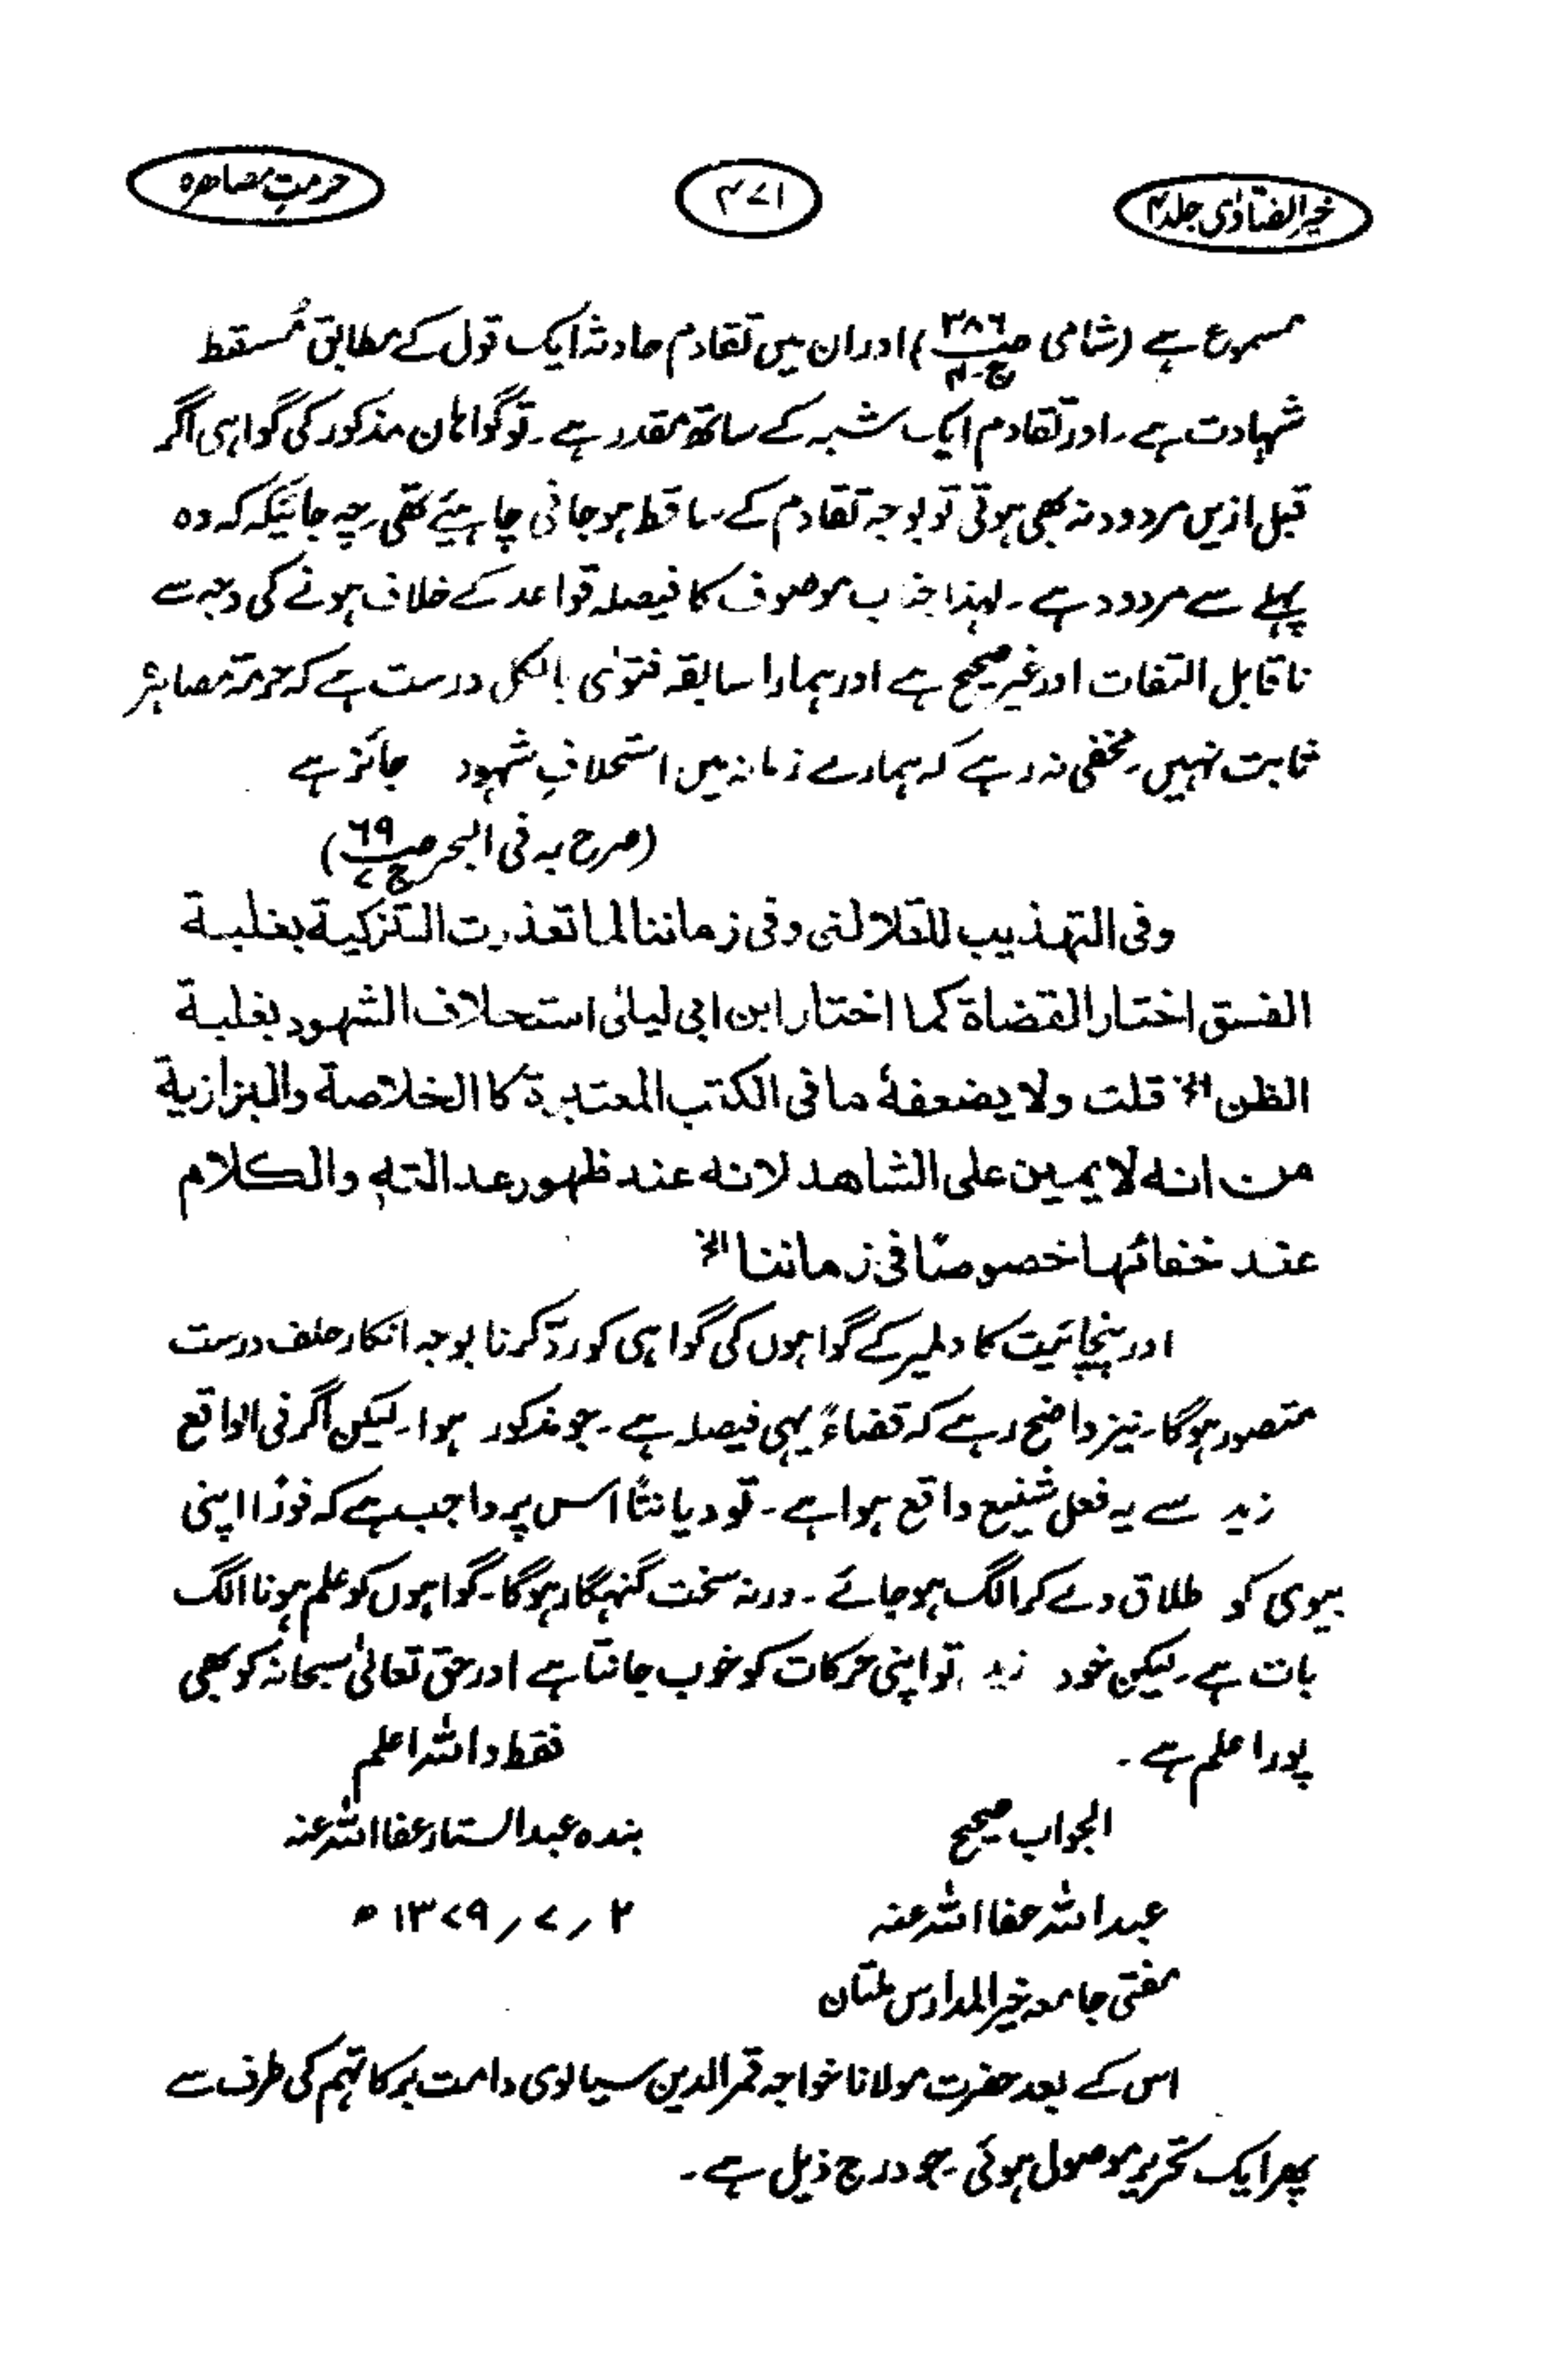 خیر الفتاویٰ جلد ۴
۴۷۱
حرمتِ مصاہرہ
مسموع ہے (شامی ص۳۸۶ ج۴) اور ان میں تقادم حادثہ ایک قول کے مطابق مُسقط
شہادت ہے۔ اور تقادم ایک شبہ کے ساتھ مقدر ہے۔ تو گواہان مذکور کی گواہی اگر
قبل ازیں مردود نہ بھی ہوتی تو بوجہ تقادم کے ساقط ہو جانی چاہیئے تھی۔ چہ جائیکہ کہ وہ
پہلے سے مردود ہے۔ لہٰذا جناب موصوف کا فیصلہ قواعد کے خلاف ہونے کی وجہ سے
ناقابل التفات اور غیر صحیح ہے اور ہمارا سابقہ فتویٰ بالکل درست ہے کہ حرمۃ مصاہرۃ
ثابت نہیں۔ مخفی نہ رہے کہ ہمارے زمانہ میں استحلافِ شہود جائز ہے
(صرح بہ فی البحر ص۶۹ ج۷)
وفی التہذیب للقلانسی وفی زماننا لما تعذرت التزکیۃ بغلبۃ
الفسق اختار القضاۃ کما اختار ابن ابی لیلیٰ استحلاف الشہود بغلبۃ
الظن الخ قلت ولا یضعفہٗ ما فی الکتب المعتبرۃ کا الخلاصۃ والبزازیۃ
من انہ لا یمین علی الشاھد لانہ عند ظھور عدالتہٖ والکلام
عند خفائھا خصوصًا فی زماننا الخ
اور پنچائیت کا دلمیر کے گواہوں کی گواہی کو ردّ کرنا بوجہ انکار حلف درست
متصور ہوگا۔ نیز واضح رہے کہ قضاءً یہی فیصلہ ہے۔ جو مذکور ہوا۔ لیکن اگر فی الواقع
زید سے یہ فعل شنیع واقع ہوا ہے۔ تو دیانتًا اس پر واجب ہے کہ فورًا اپنی
بیوی کو طلاق دے کر الگ ہو جائے۔ ورنہ سخت گنہگار ہوگا۔ گواہوں کو علم ہونا الگ
بات ہے۔ لیکن خود زید تو اپنی حرکات کو خوب جانتا ہے اور حق تعالیٰ سبحانہ کو بھی
پورا علم ہے۔
فقط واللہ اعلم
الجواب صحیح
بندہ عبدالستار عفا اللہ عنہ
عبداللہ عفا اللہ عنہ
۲ / ۷ / ۱۳۷۹ ھ
مفتی جامعہ خیر المدارس ملتان
اس کے بعد حضرت مولانا خواجہ قمر الدین سیالوی دامت برکاتہم کی طرف سے
پھر ایک تحریر موصول ہوئی۔ جو درج ذیل ہے۔